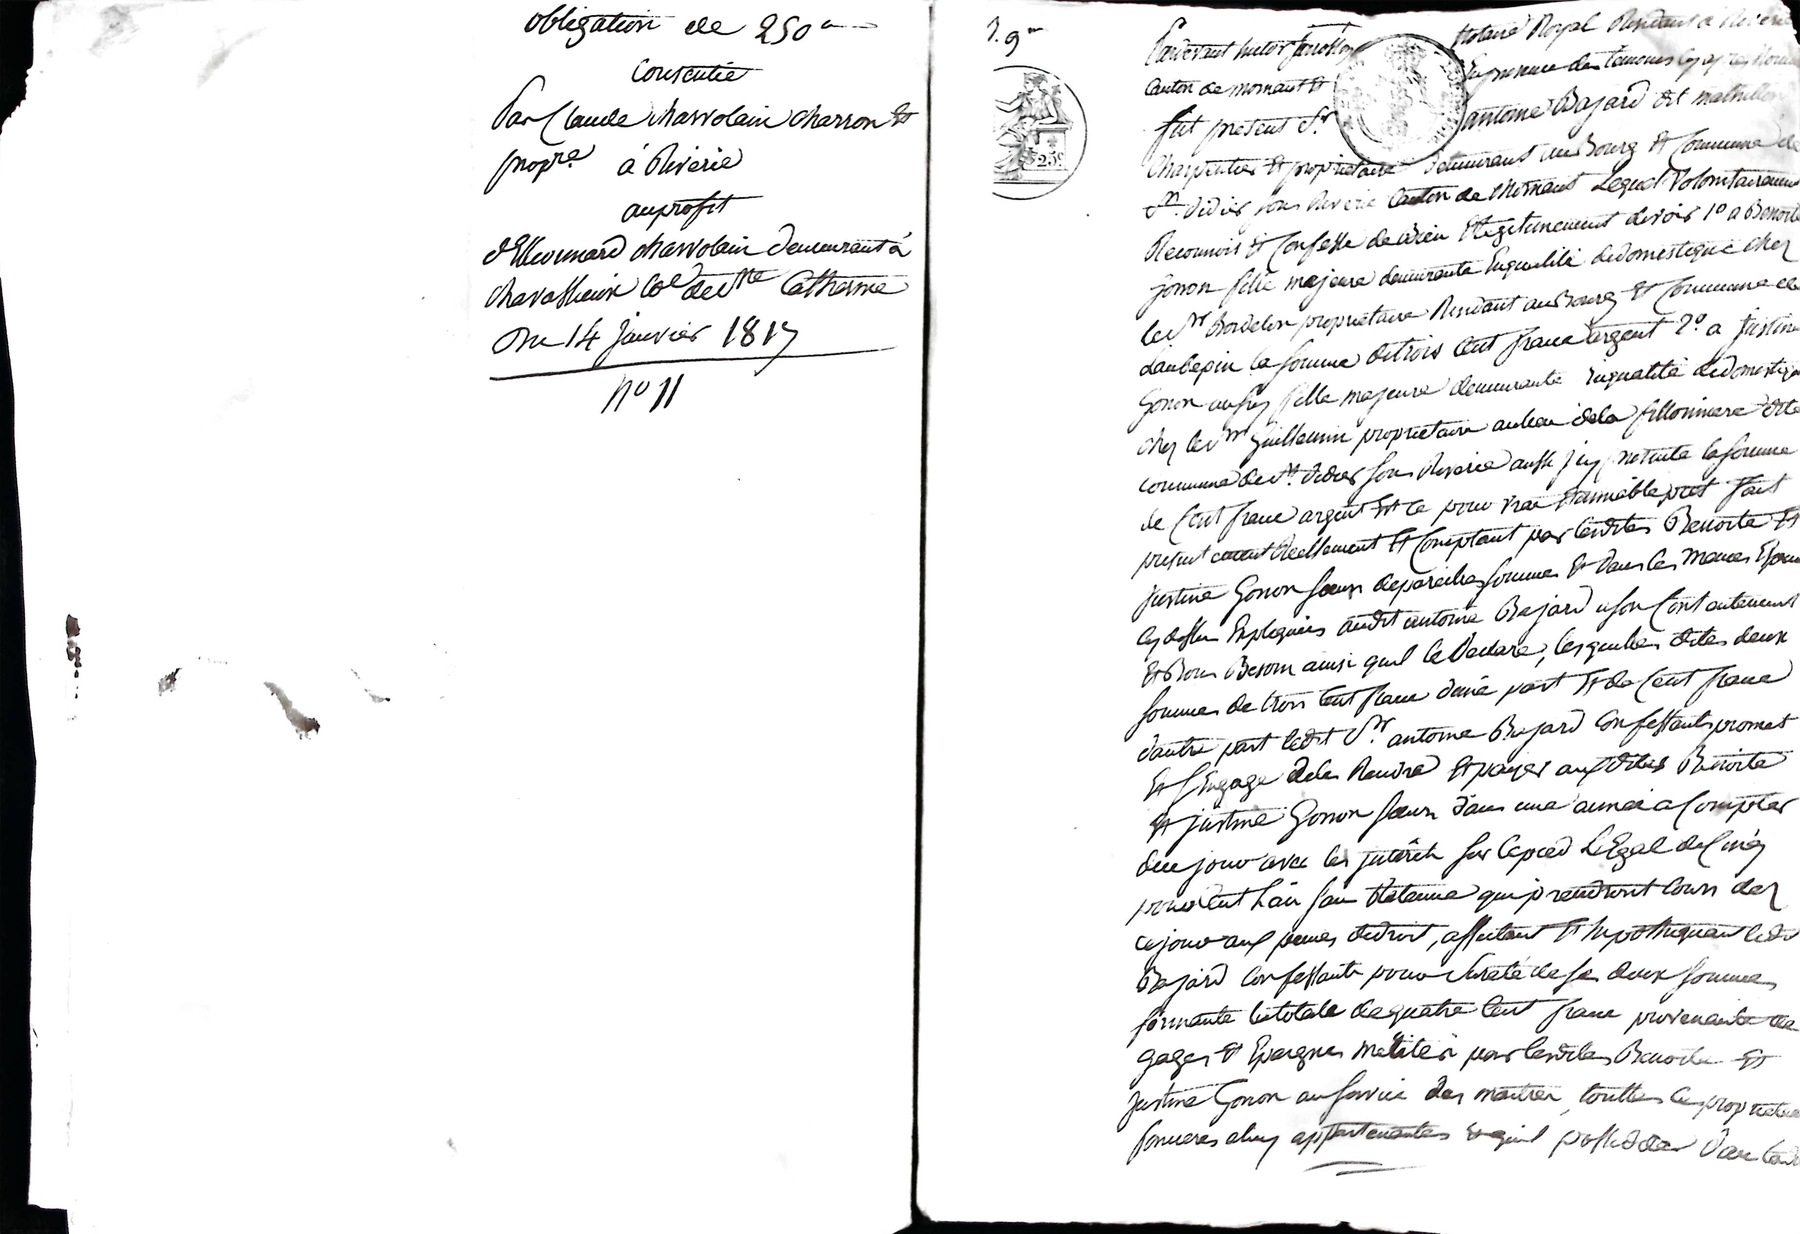 obligation de 250
Consentie
Par Claude charvolain charron et
propre à Riverie
au profit
charvolain demeurant à
chavassieux Coe de Ste Catherine
Du 14 Janvier 1817
No 11
25c
Pardevant notaire Royal Résidant à Riverie
Canton de mornant et En presence des temoins cy apres
fut présent Sr antoine Bajard dit
Charpentier et proprietaire demeurant au Bourg et Commune de
St didier sous Riverie Canton de Mornant Lequel Volontairement
Reconnois et Confesse devoir 1o a Benoite
Gonon fille majeure demeurante En qualité de domestique chez
le Sr proprietaire Residant au Bourg et Commune de
Laubepin la somme de trois Cent franc argent 2o a Justine
Gonon aussy fille majeure demeurante En qualité de domestique
chez le Sr Guillaumin proprietaire au lieu de la dite
commune de St didier sous Riverie aussi la somme
de Cent franc argent Et ce pour vrai et amiable pret fait
Reellement et Comptant par lesdites Benoite et
Justine Gonon sœurs de pareilles sommes Et dans les memes
cy dessus Expliquées audit antoine Bajard a son Contentement
Et Bon Besoin ainsi quil le Declare, lesquelles dites deux
sommes de trois Cent franc dune part Et de Cent franc
dautre part ledit Sr antoine Bajard Confessant promet
Et sEngage de les Rendre Et payer auxdites Benoite
et Justine Gonon sœurs dans une année a Compter
de ce jour avec les interêts sur le pied LEgal de Cinq
pour Cent Lan sans Retenue qui prendront Cours dez
ce jour aux peines de droit, affectant Et hypothequant ledit
Bajard Confessant pour Sureté de ses deux sommes
formante le totale de quatre Cent franc provenante de
gages et Epargnes par lesdites Benoite Et
Justine Gonon au service des maitres, touttes les proprietés
foncieres a luy appartenantes Et quil possede dans